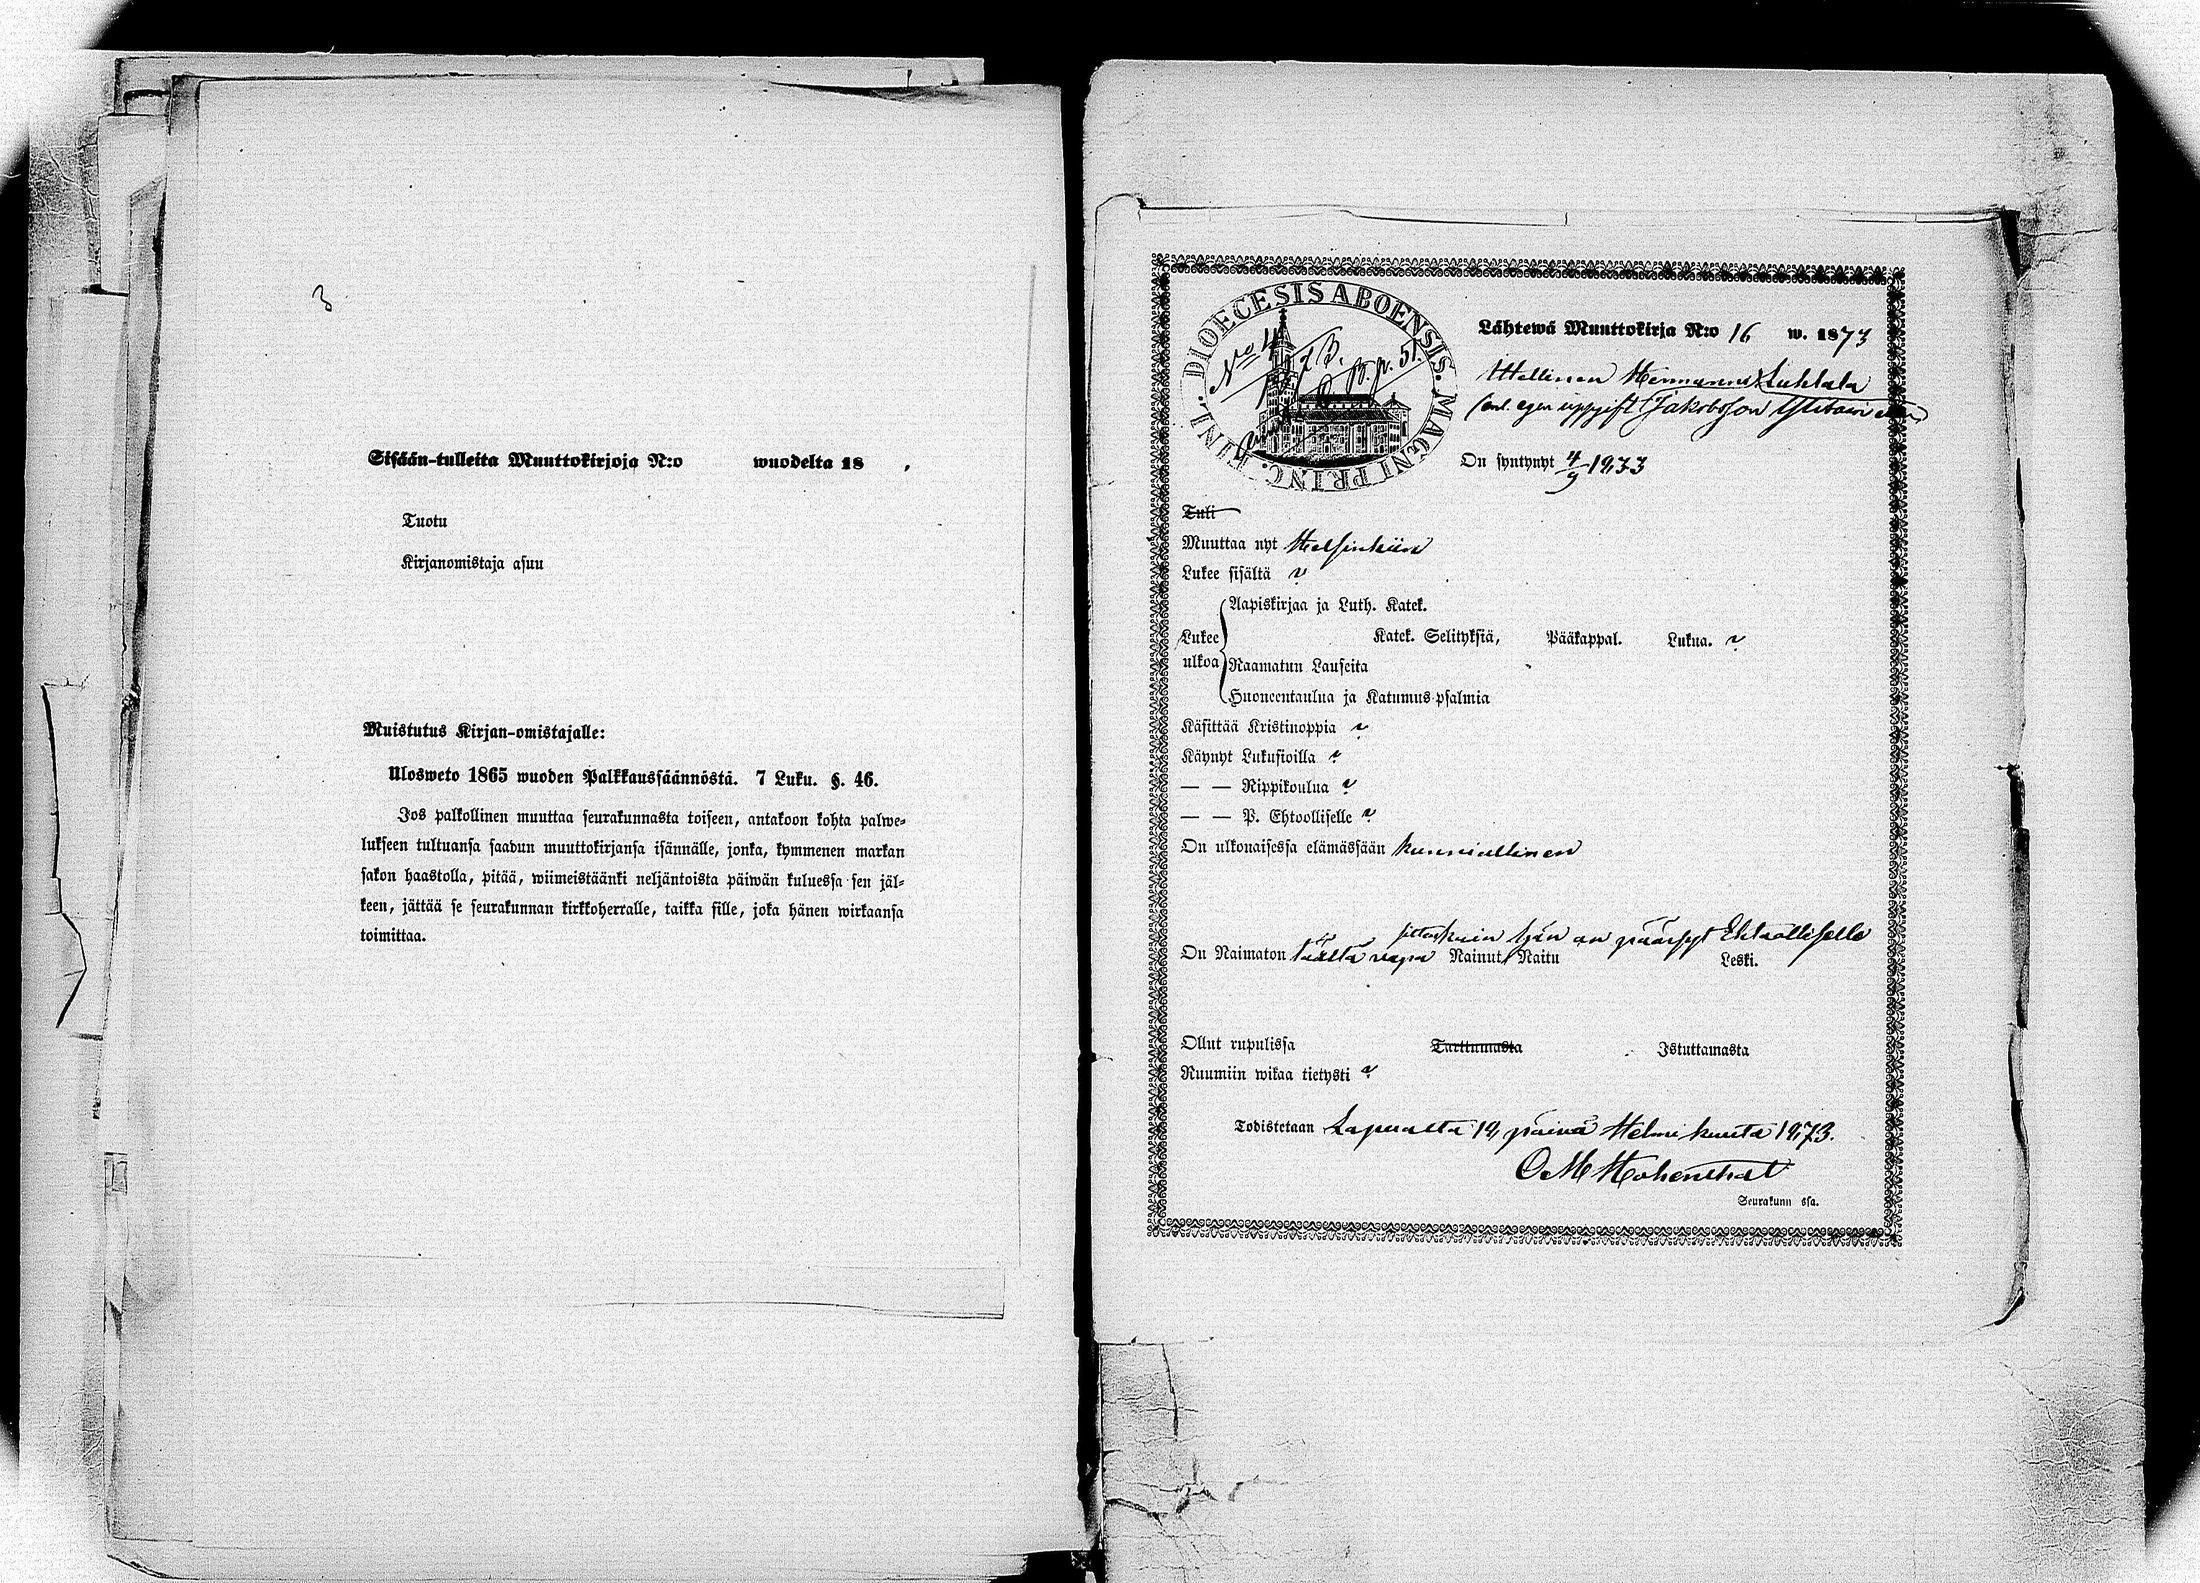 3
Sisään-tulleita Muuttokirjoja N:o wuodelta 18 .
Tuotu
Kirjanomistaja asuu
Muistutus Kirjan-omistajalle:
Ulosweto 1865 wuoden Palkkaussäännöstä. 7 Luku. §. 46.
Jos palkollinen muuttaa seurakunnasta toiseen, antakoon kohta palwe-
lukseen tultuansa saadun muuttokirjansa isännälle, jonka, kymmenen markan
sakon haastolla, pitää, wiimeistäänki neljäntoista päiwän kuluessa sen jäl-
keen, jättää se seurakunnan kirkkoherralle, taikka sille, joka hänen wirkaansa
toimittaa.
DIOECESIS ABOENSIS. MAGNI PRINC. FINL.
No 4
73. B. p. 51.
Lähtewä Muuttokirja N:o 16 w. 1873
Ittellinen Hermanni Luhtala
(enl. egen uppgift Jakobsson
On syntynyt 4/9 1833
Tuli
Muuttaa nyt Helsinkiin
Lukee sisältä ?
Aapiskirjaa ja Luth. Katek.
Lukee Katek. Selityksiä, Pääkappal. Lukua. ?
ulkoa Raamatun Lauseita
Huoneentaulua ja Katumus-psalmia
Käsittää Kristinoppia ?
Käynyt Lukusioilla ?
— — Rippikoulua ?
— — P. Ehtoolliselle ?
On ulkonaisessa elämässään kunniallinen
sittenkuin hän on päässyt Ehtoolliselle
On Naimaton täältä vapa Nainut Naitu Leski.
Ollut rupulissa Tarttumasta Istuttamasta
Ruumiin wikaa tietysti ?
Todistetaan Lapualta 19 päivä Helmikuuta 1873.
Hohenthal
Seurakunn ssa.